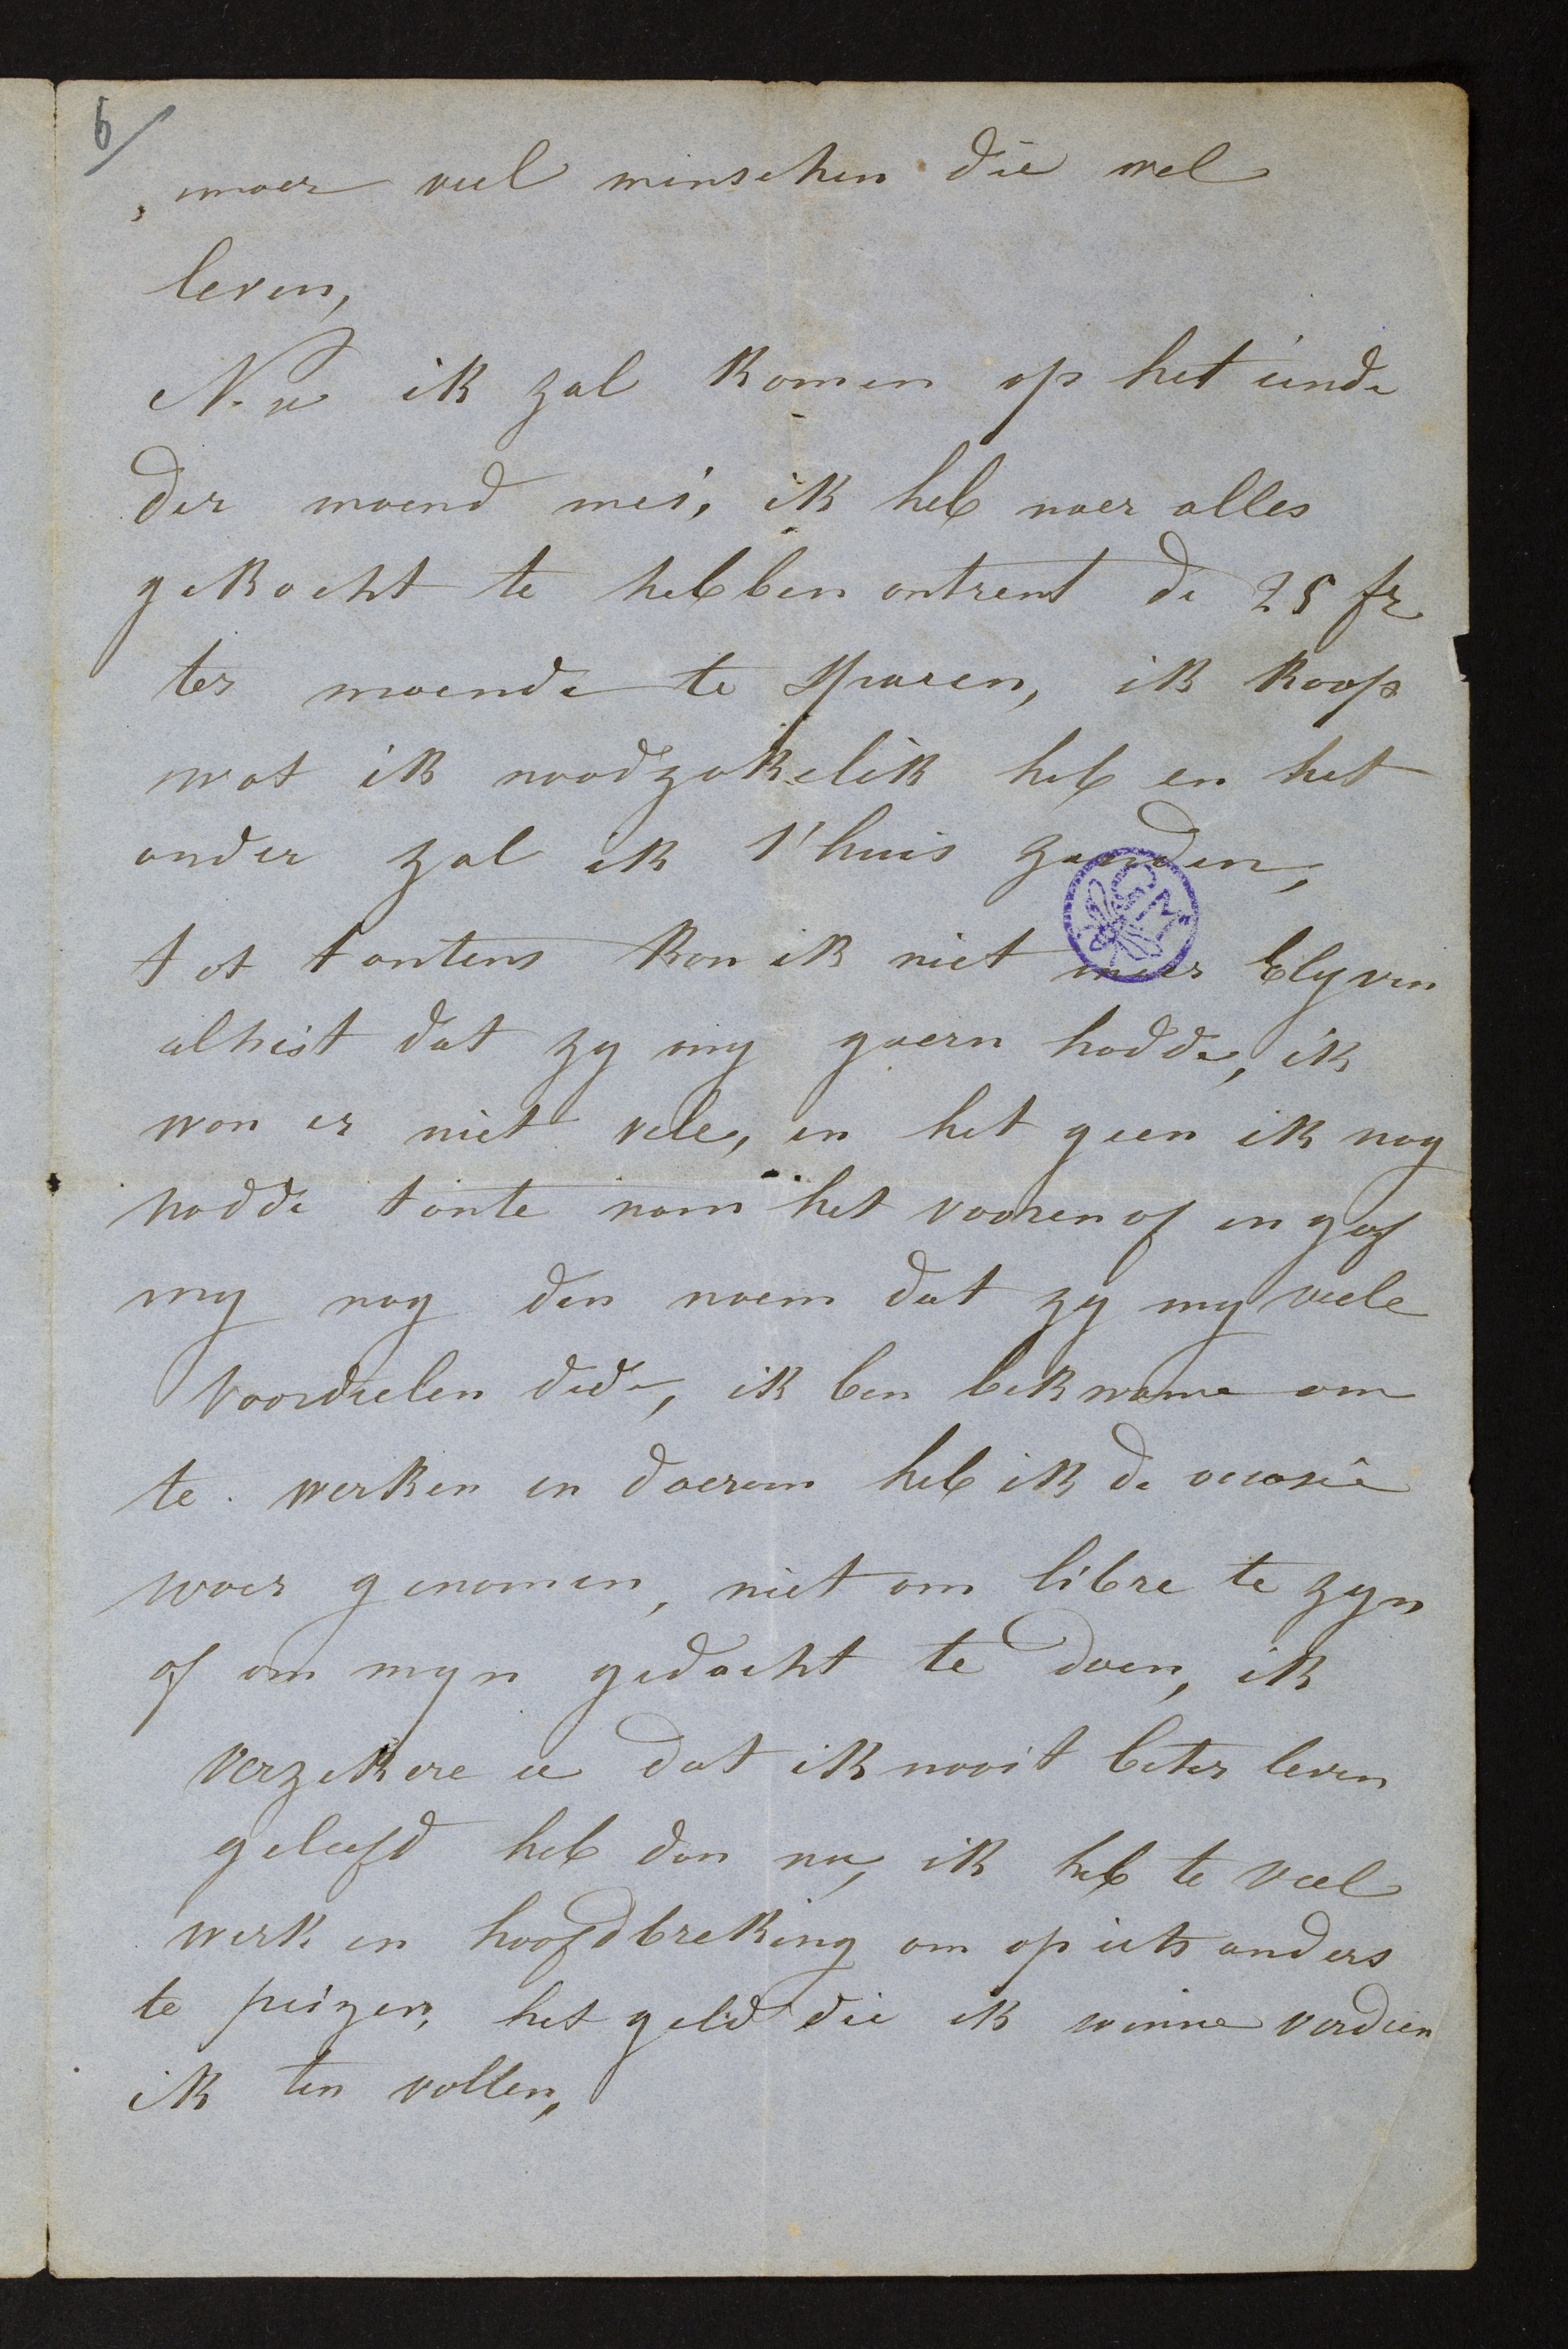 6/
, maer veel minschen die wel
leven,
Nu ik zal komen op het einde
der maend mei, ik heb naer alles
gekocht te hebben ontrent de 25 fr
ter maende te sparen, ik koop
wat ik noodzakelik heb en het
ander zal ik t'huis zenden,
tot tantens kon ik niet meer blyven
alheist dat zy my gaern hadde, ik
won er niet vele, en het geen ik nog
hadde tante nam het vooren of en gaf
my nog den naem dat zy my veele
voordeelen dede, ik ben bekwame om
te werken en daerom heb ik de occasie
waer genomen, niet om libre te zyn
of om myn gedacht te doen, ik
verzekere u dat ik nooit beter leven
geleefd heb dan nu, ik heb te veel
werk en hoofdbreking om op iets anders
te peizen, het geld die ik winne verdien
ik ten vollen,
GM